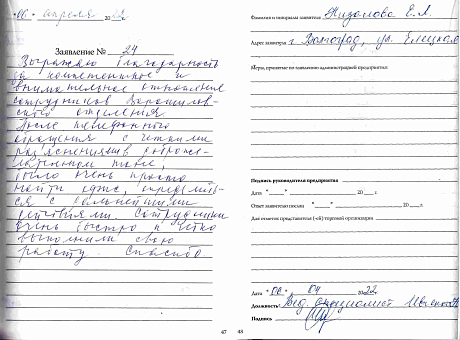 "06" апреля 2022
Заявление № 24
Выражаю благодарность
за компетентное и
внимательное отношение
сотрудников Ворошилов-
ского отделения
После телефонного
обращения с четкими
разъяснениями в доброже-
лательном тоне,
было очень просто
найти офис, определив-
ся с дальнейшими
действиями. Сотрудники
очень быстро и чётко
выполнили свою
работу. Спасибо.
47
Фамилия и инициалы заявителя Е.А.
Адрес заявителя г. Волгоград, ул. Елецкая
Меры, принятые по заявлению администрацией предприятия:
Подпись руководителя предприятия
Дата "___" 20__ г.
Ответ заявителю послан "___" 20__ г.
Для отметок представителя (-ей) торговой организации
Дата "06" 04 2022
Должность: Вед. специалист
Подпись
48